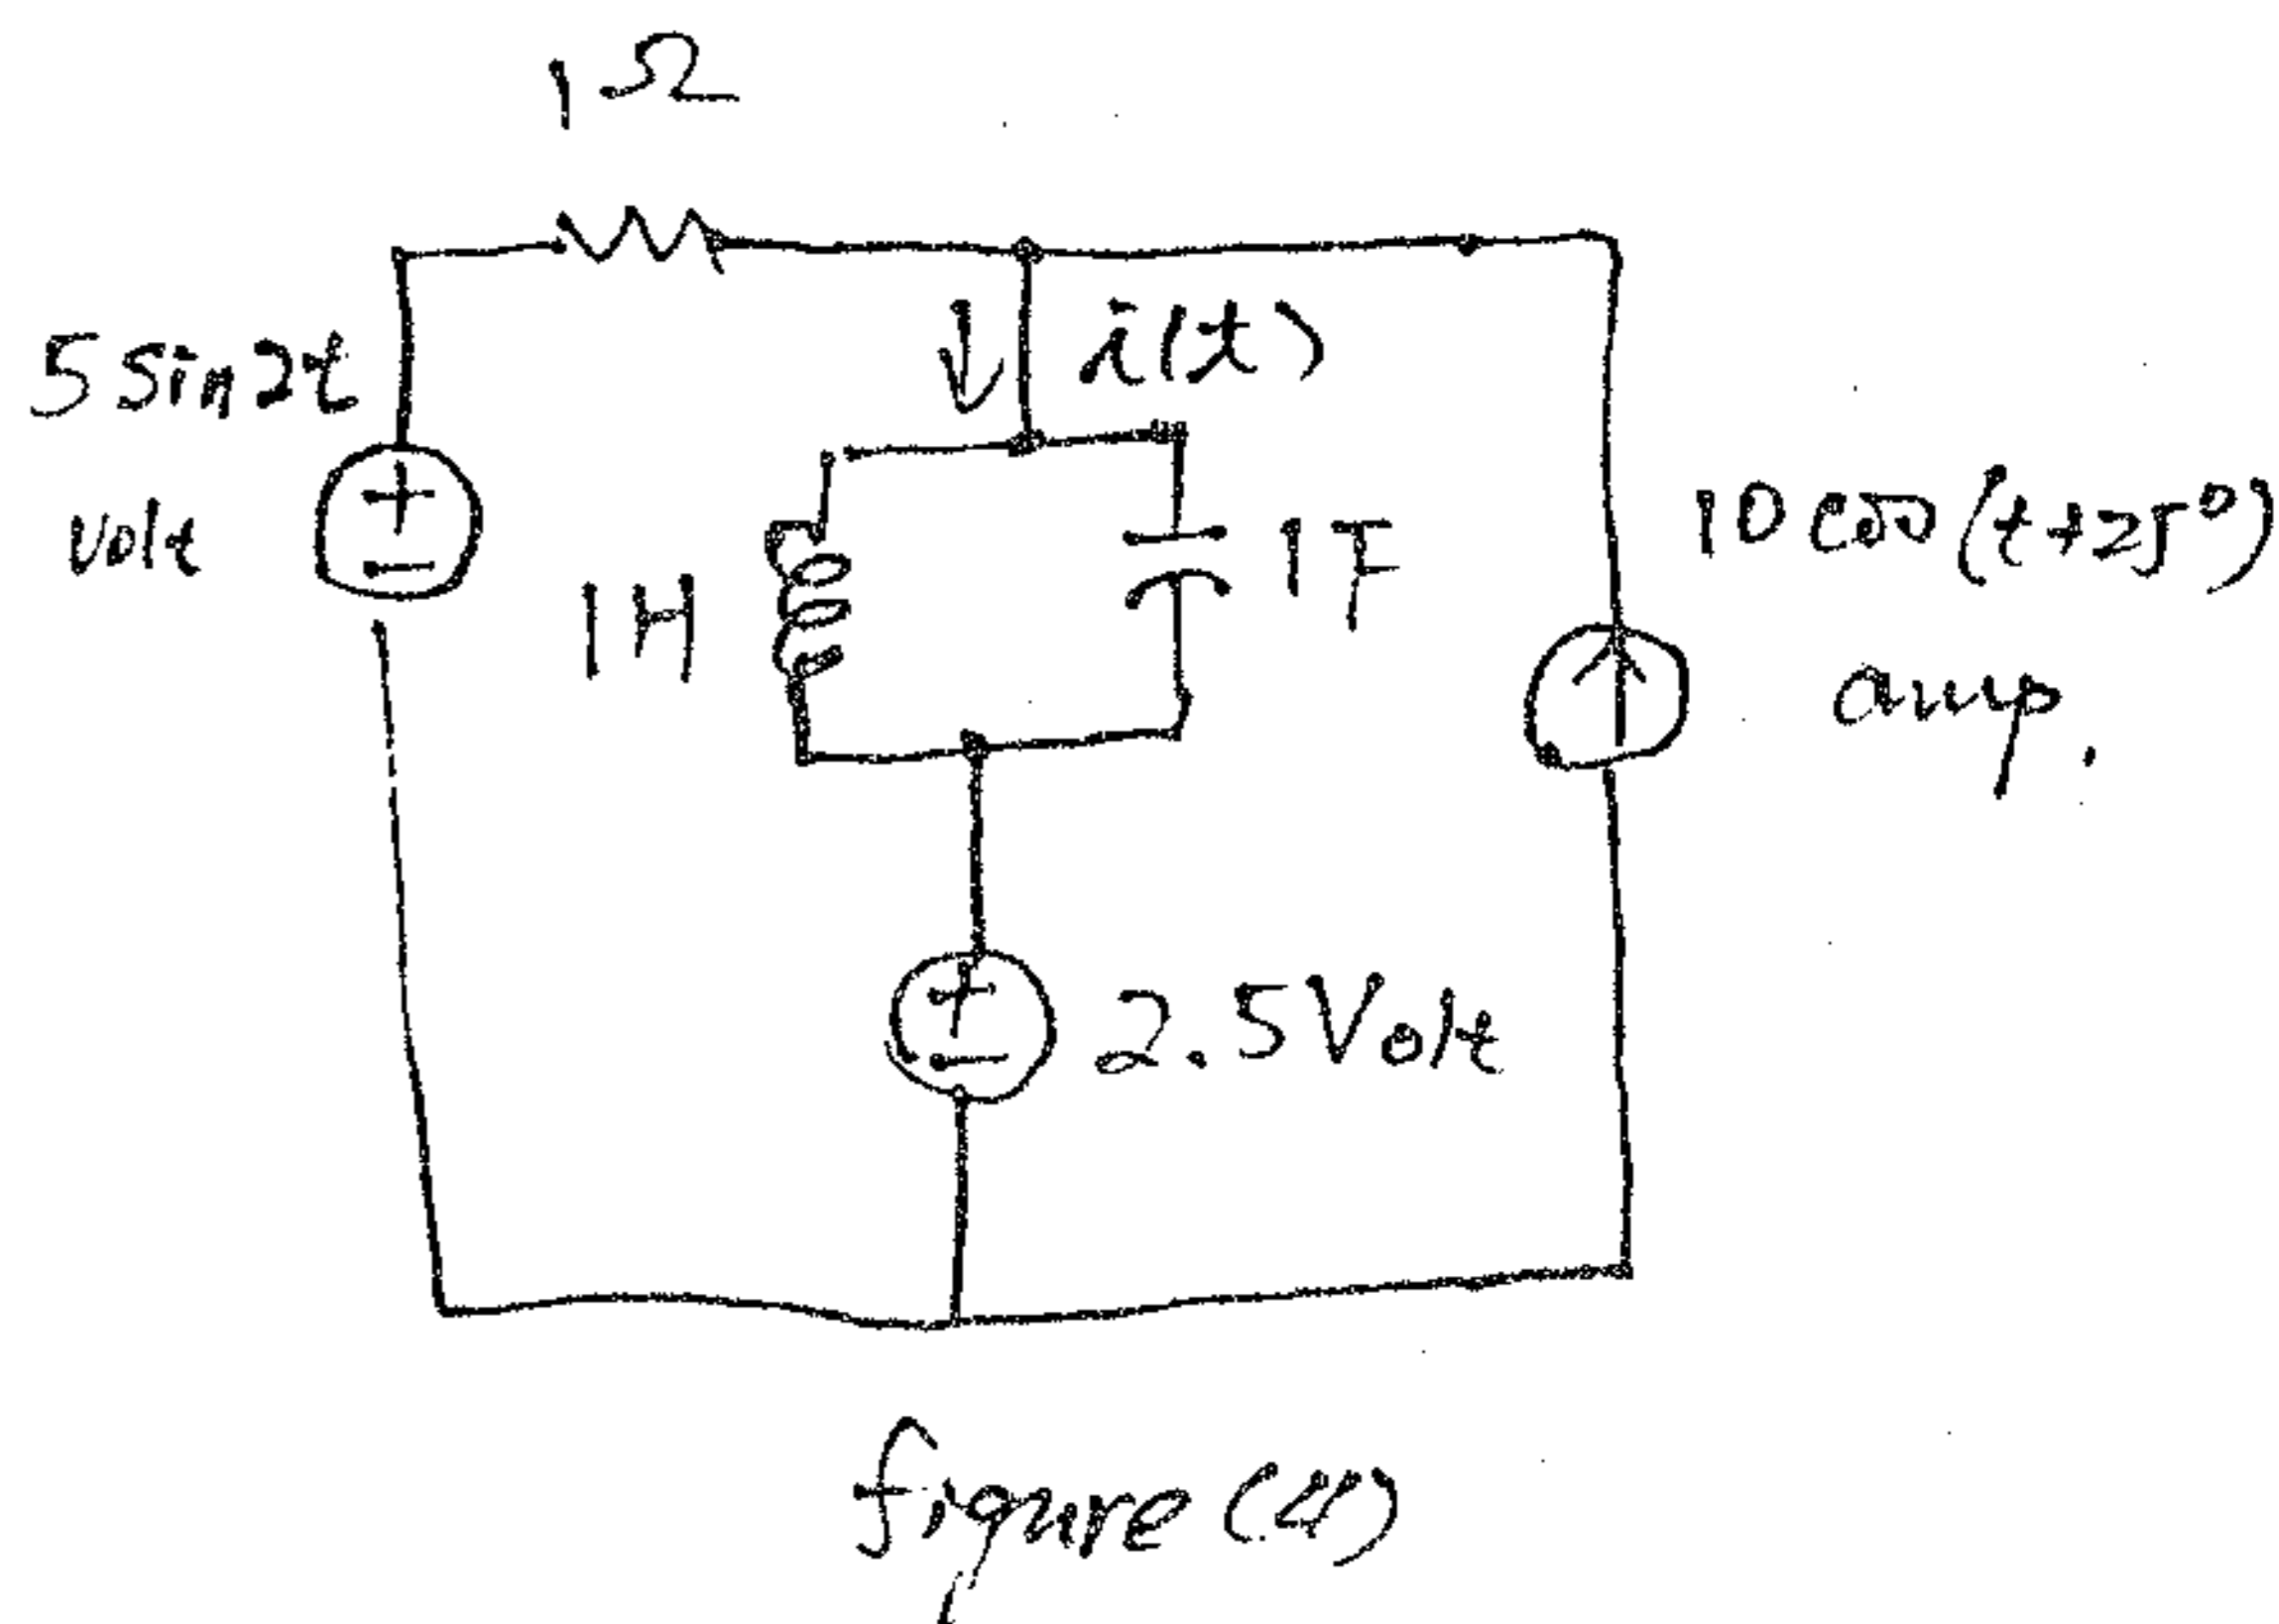 1Ω
5 sin2t
volt
+
−
i(t)
1H
1F
10 cos(t+25°)
amp.
+
−
2.5Volt
figure (4)